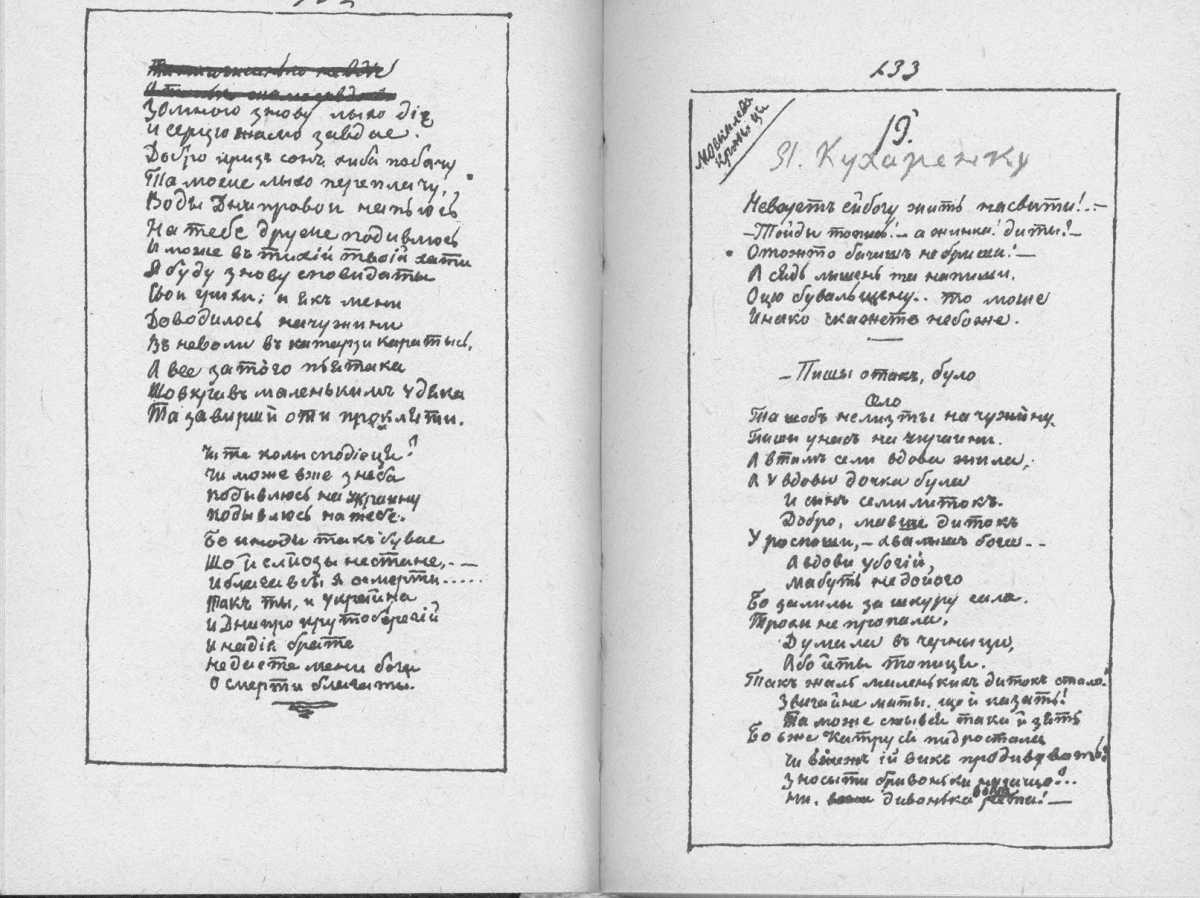 Зо мною знову лыхо діє
И серцю жалю завдае.
Добро кризь сонъ хиба побачу
Та мое лыхо переплачу,
Воды Днипровои напьюсь
На тебе друже подивлюсь
И може въ тихій твоій хати
Я буду знову розмовляты
Доводилось на чужини
Въ неволи въ катарзи каратысь,
А все за того пьятака
Що вкравъ маленькимъ у дяка
Та завиршй оти прокляти.
Чи те колы сподіеця?
Чи може вже з неба
Подывлюсь на Украину
Подывлюсь на тебе.
Бо иноди такъ бувае
Що й слиозы нестане,.—
И благавъ я о смерти.....
Такъ ты, и Украйна
И Днипро крутоберегій
И надія брате
Не даете мени бога
О смерти благаты.
133
Москалева Крыныця
Я. Кухаренку
Не варт ейбогу жить на свити!.—
—То йды топись!— а жинка! диты?—
Отожто бачишъ не бриши!—
А сядь лышень та напиши,
Оцю бувальщену.. то може
Инако скажемо небоже.
— Пишы отакъ, було
село
Та щобъ нелизты на чужину,
Пиши у насъ на Украини.
А втимъ сели вдова жила,
А у вдовы дочка була
И сынъ семилитокъ.
Добро, мавше дитокъ
У роскоши,— хвалишъ бога..
А вдови убогій,
Мабуть не до його
Бо залилы за шкуру сала.
Трохи не пропала,
Думала въ черныци,
Або йты топиця.
Такъ жаль маленькихъ дитокъ стало.
Звичайне маты. що й казать!
Та може снывся таки й зять
Бо вже Катруся пидростала
Чи вдовъ ій викъ продивувать?
Зносыти бривоньки нинащо?..
Ни, дивонька